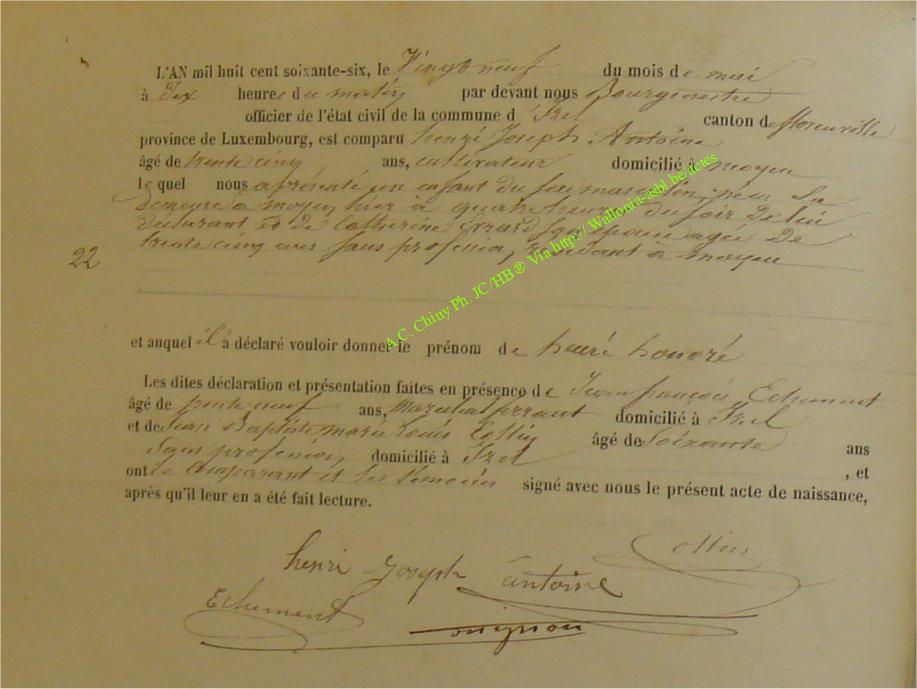 L'AN mil huit cent soixante-six, le Vingt neuf du mois de mai
à Dix heures du matin par devant nous Bourgmestre
officier de l'état civil de la commune d'Izel canton de florenville
province de Luxembourg, est comparu henri Joseph Antoine
âgé de trente cinq ans, cultivateur domicilié à moyen
lequel nous a présenté un enfant du sexe masculin
demeure a moyen hier à quatre heures du soir de lui
déclarant et de Catherine Evrard son épouse agée de
22
trente cinq ans sans profession, résidant à moyen
et auquel il a déclaré vouloir donner le prénom de henri honoré
Les dites déclaration et présentation faites en présence de Jean françois Echement
âgé de trente neuf ans, maréchal ferrant domicilié à Izel
et de Jean Baptiste marie Louis Collin âgé de Soixante ans
Sans profession domicilié à Izel , et
ont le comparant et les témoins signé avec nous le présent acte de naissance,
après qu'il leur en a été fait lecture.
Collin
henri Joseph antoine
Echement
A.C. Chiny Ph. JC/HB® Via http://Wallonia-asbl.be/actes